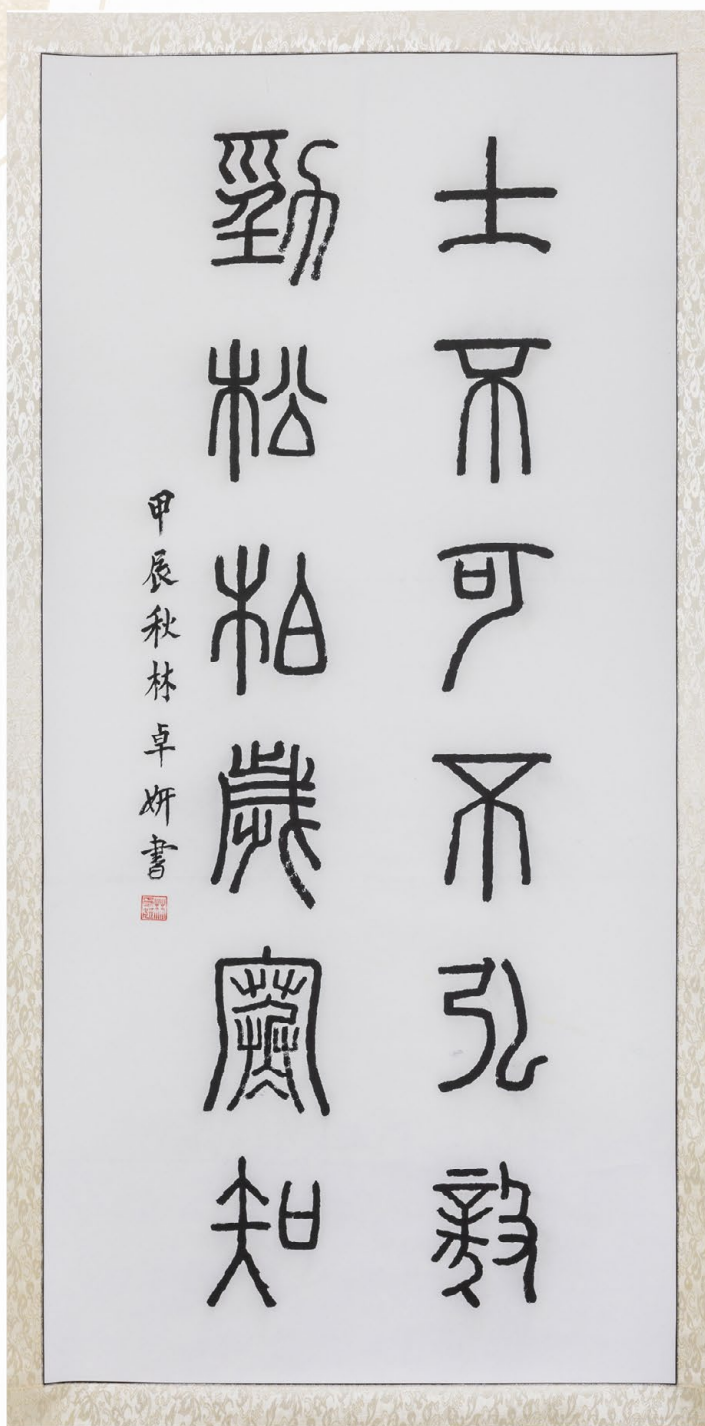 士不可不弘毅
勁松柏歲寒知
甲辰秋林卓妍書